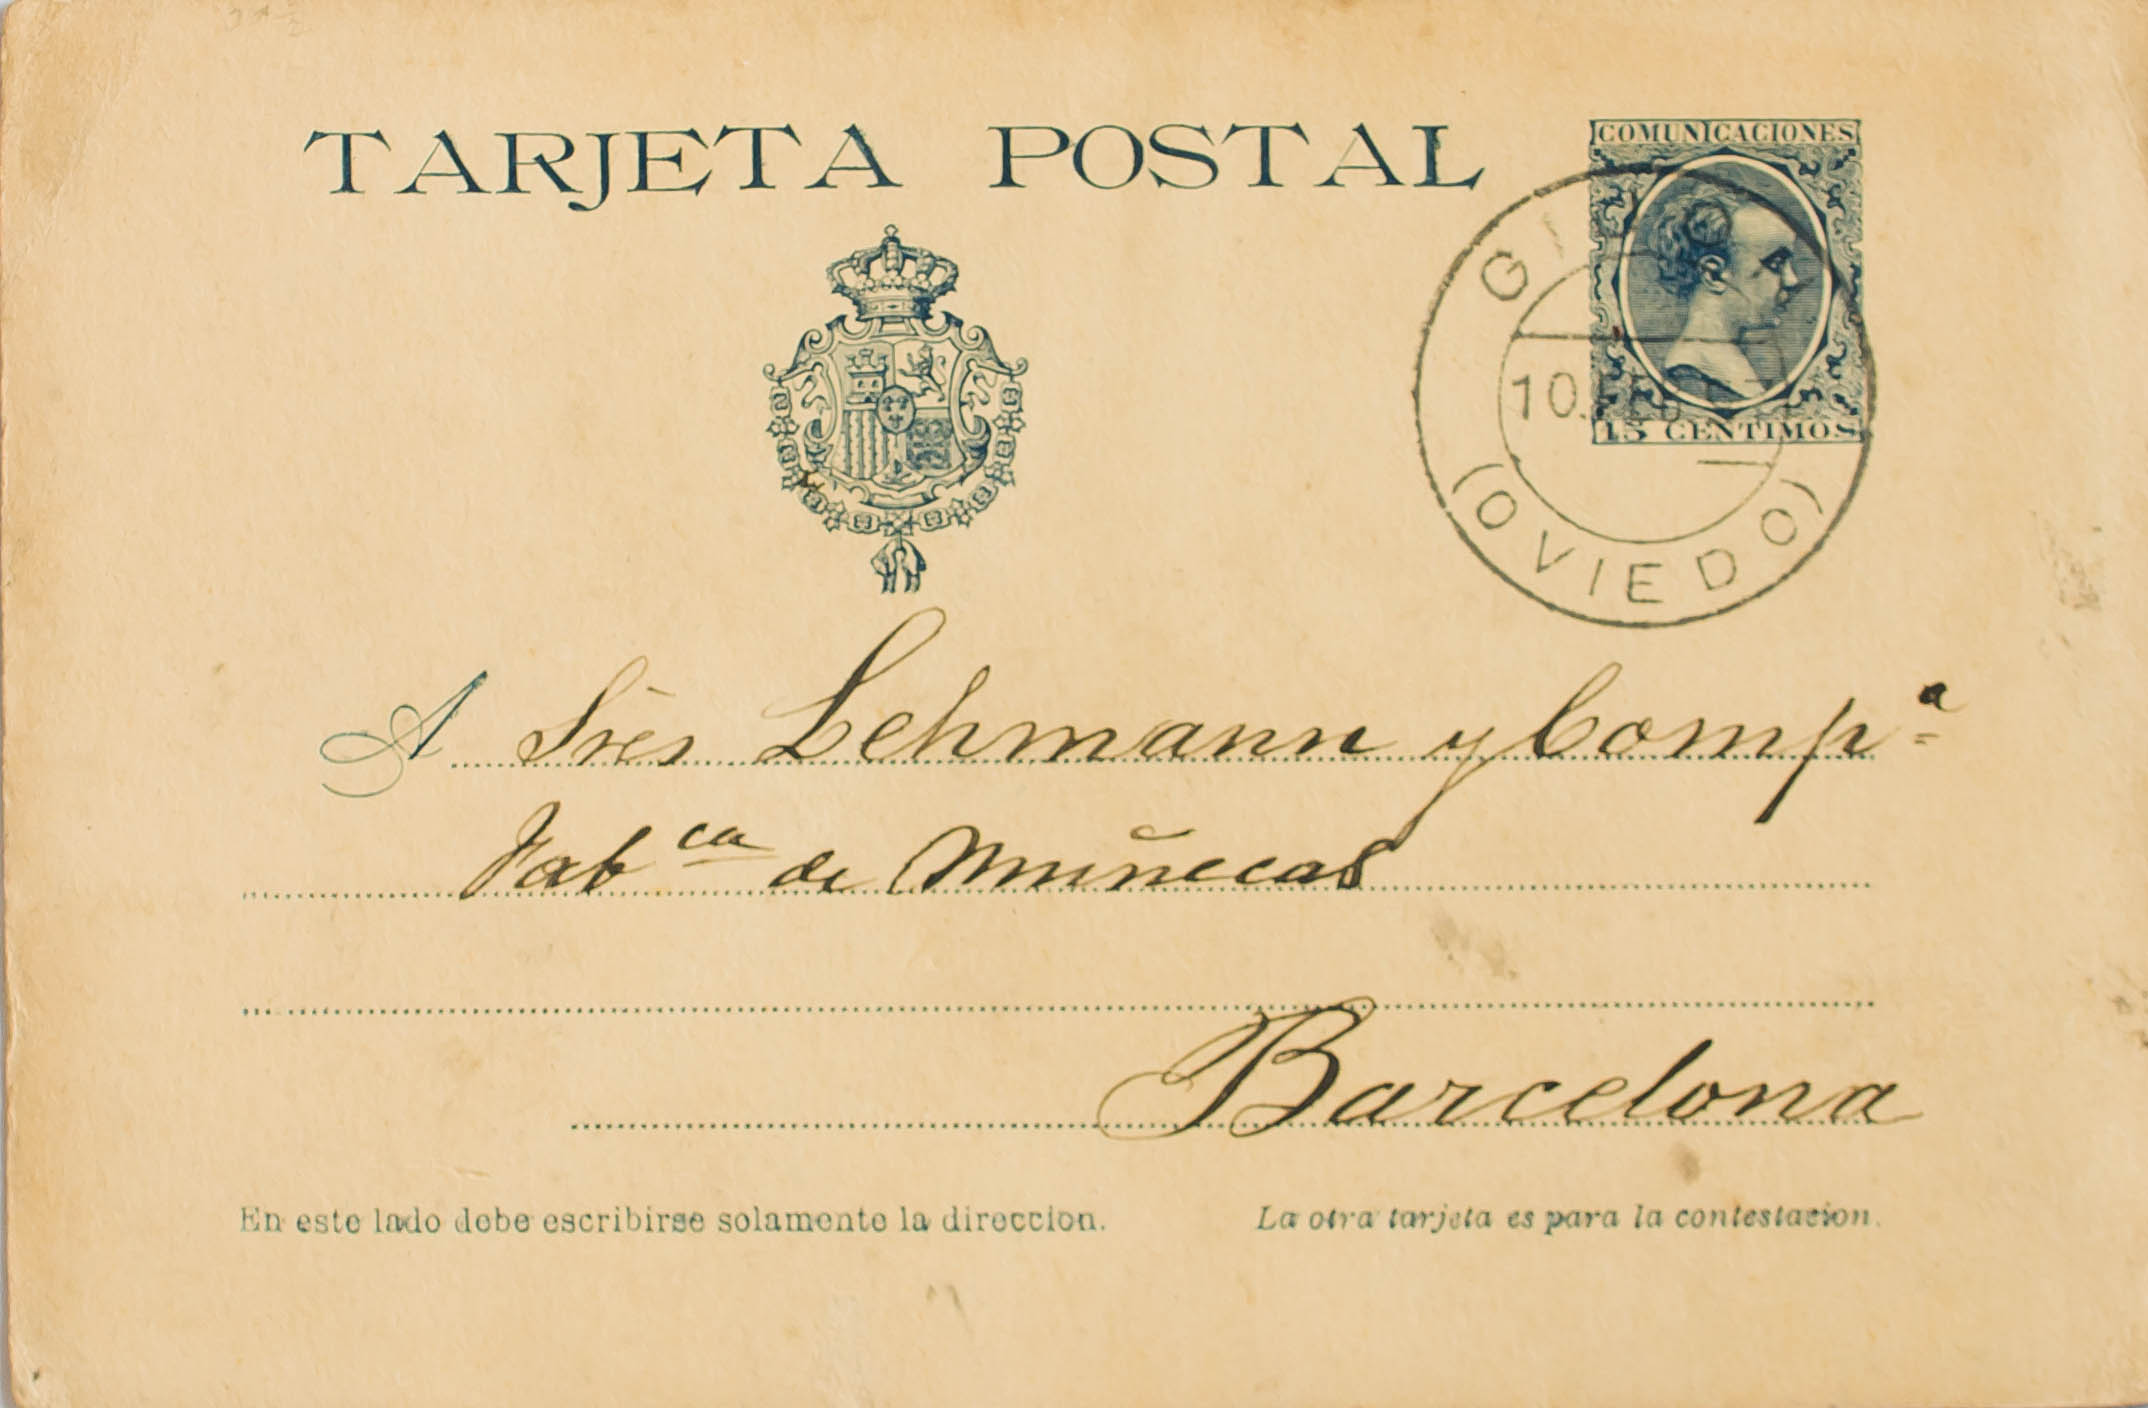 TARJETA POSTAL
COMUNICACIONES
15 CENTIMOS
10.
(OVIEDO)
A Sres Lehmann y Comp.ª
Fab ca de Muñecas
Barcelona
En este lado debe escribirse solamente la direccion.
La otra tarjeta es para la contestacion.